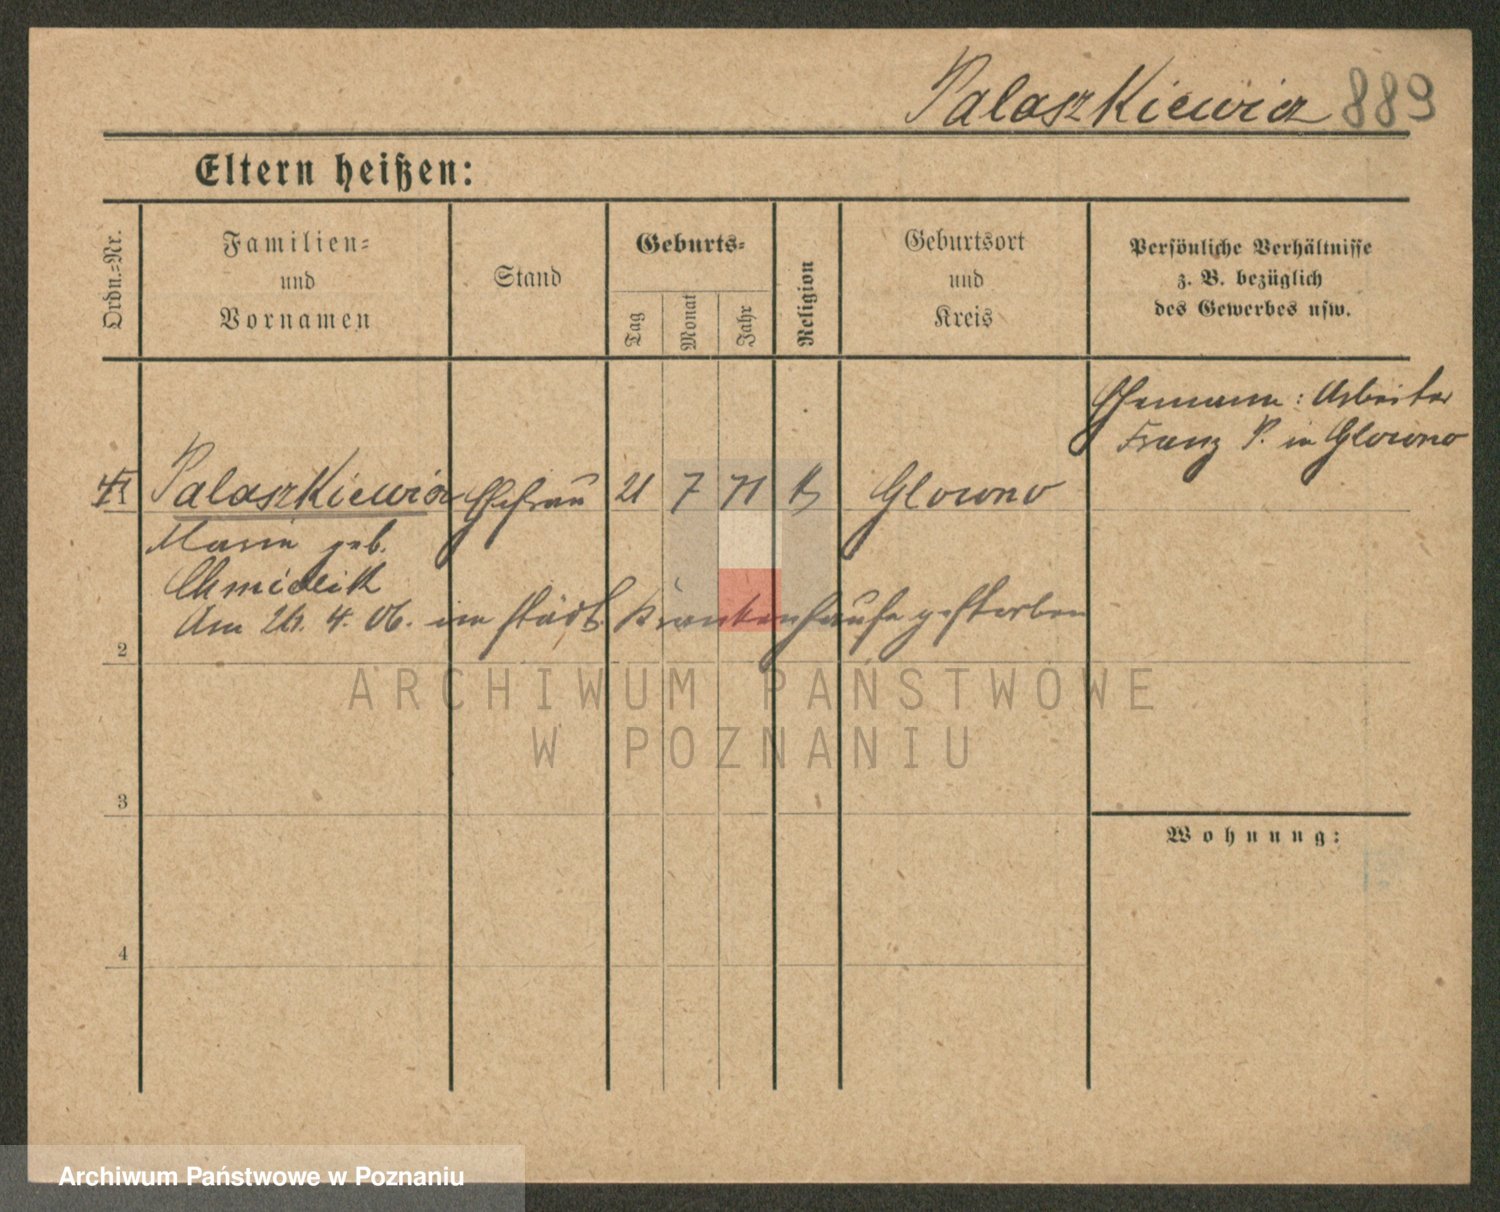 Palaszkiewicz 889
Eltern heißen:
Ordn.-Nr.
Familien-
und
Vornamen
Stand
Geburts-
Tag
Monat
Jahr
Religion
Geburtsort
und
Kreis
Persönliche Verhältnisse
z. B. bezüglich
des Gewerbes usw.
Ehemann: Arbeiter
Franz P. in Glowno
Palaszkiewicz Ehefrau 21 7 71 k Glowno
Marie geb.
Chmielik
Am 26. 4. 06. im städt. Krankenhause gestorben
2
ARCHIWUM PAŃSTWOWE
W POZNANIU
3
Wohnung:
4
Archiwum Państwowe w Poznaniu